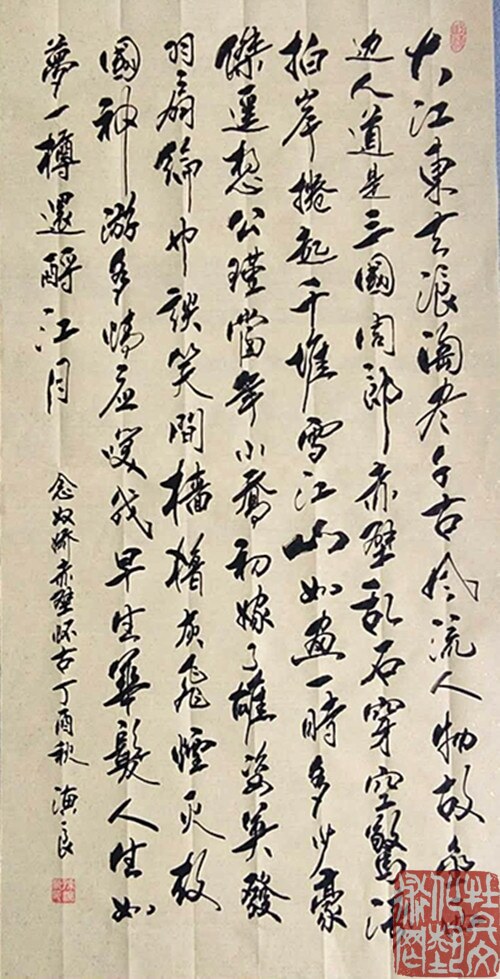 大江東去浪淘尽千古风流人物故垒西
边人道是三國周郎赤壁乱石穿空驚涛
拍岸捲起千堆雪江山如画一時多少豪
傑遥想公瑾當年小喬初嫁了雄姿英發
羽扇綸巾談笑間檣櫓灰飛煙灭故
國神游多情应笑我早生華髮人生如
夢一樽還酹江月
念奴娇赤壁怀古丁酉秋演良